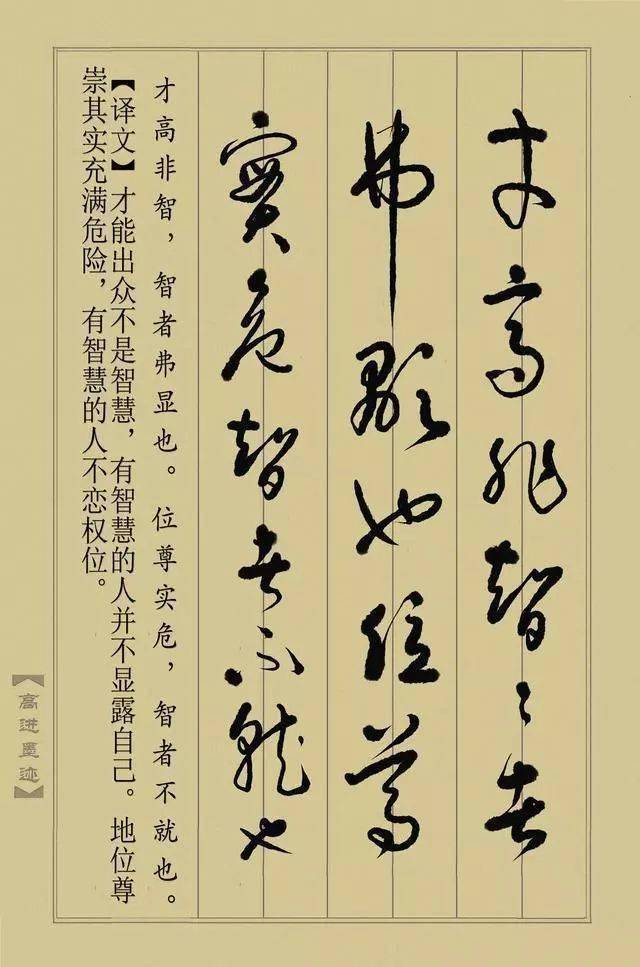 才高非智〻者
弗顯也位尊
實危智者不就也
才高非智，智者弗显也。位尊实危，智者不就也。
【译文】才能出众不是智慧，有智慧的人并不显露自己。地位尊
崇其实充满危险，有智慧的人不恋权位。
【高进墨迹】